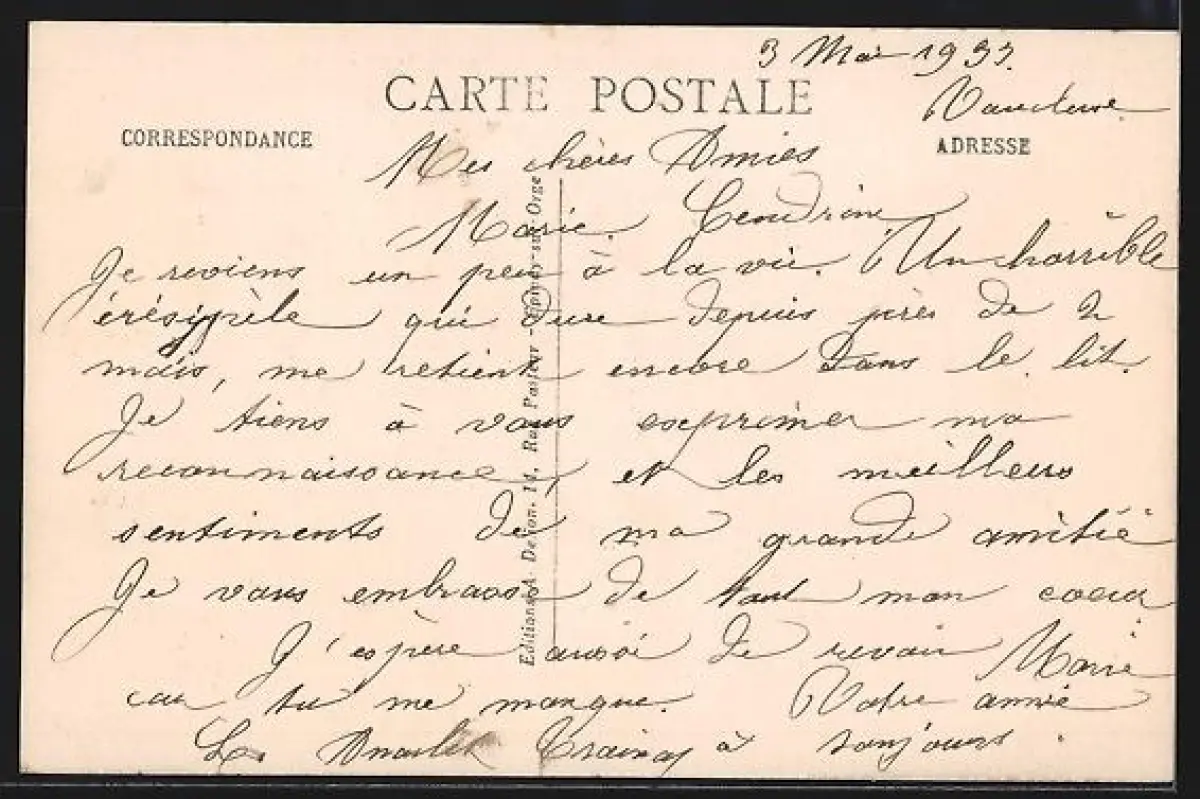 3 Mai 1933.
CARTE POSTALE
Vaucluse
CORRESPONDANCE
ADRESSE
Mes chères Amies
Marie.
Je reviens un peu à la vie. Un horrible
érésipèle qui dure depuis près de 2
mois, me retient encore dans le lit.
Je tiens à vous exprimer ma
reconnaissance, et les meilleurs
sentiments de ma grande amitié
Je vous embrasse de tout mon coeur
J'espère aussi de revoir Marie
car tu me manque. Votre amie
à toujours
Editions A. Devon. 14. Rue Pasteur - Epinay-sur-Orge